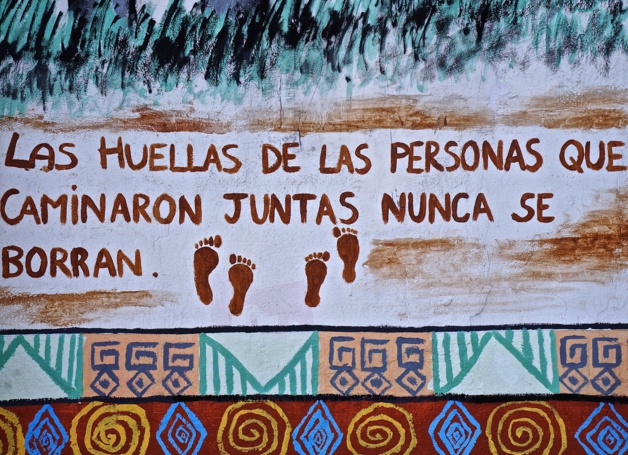 LAS HUELLAS DE LAS PERSONAS QUE
CAMINARON JUNTAS NUNCA SE
BORRAN.